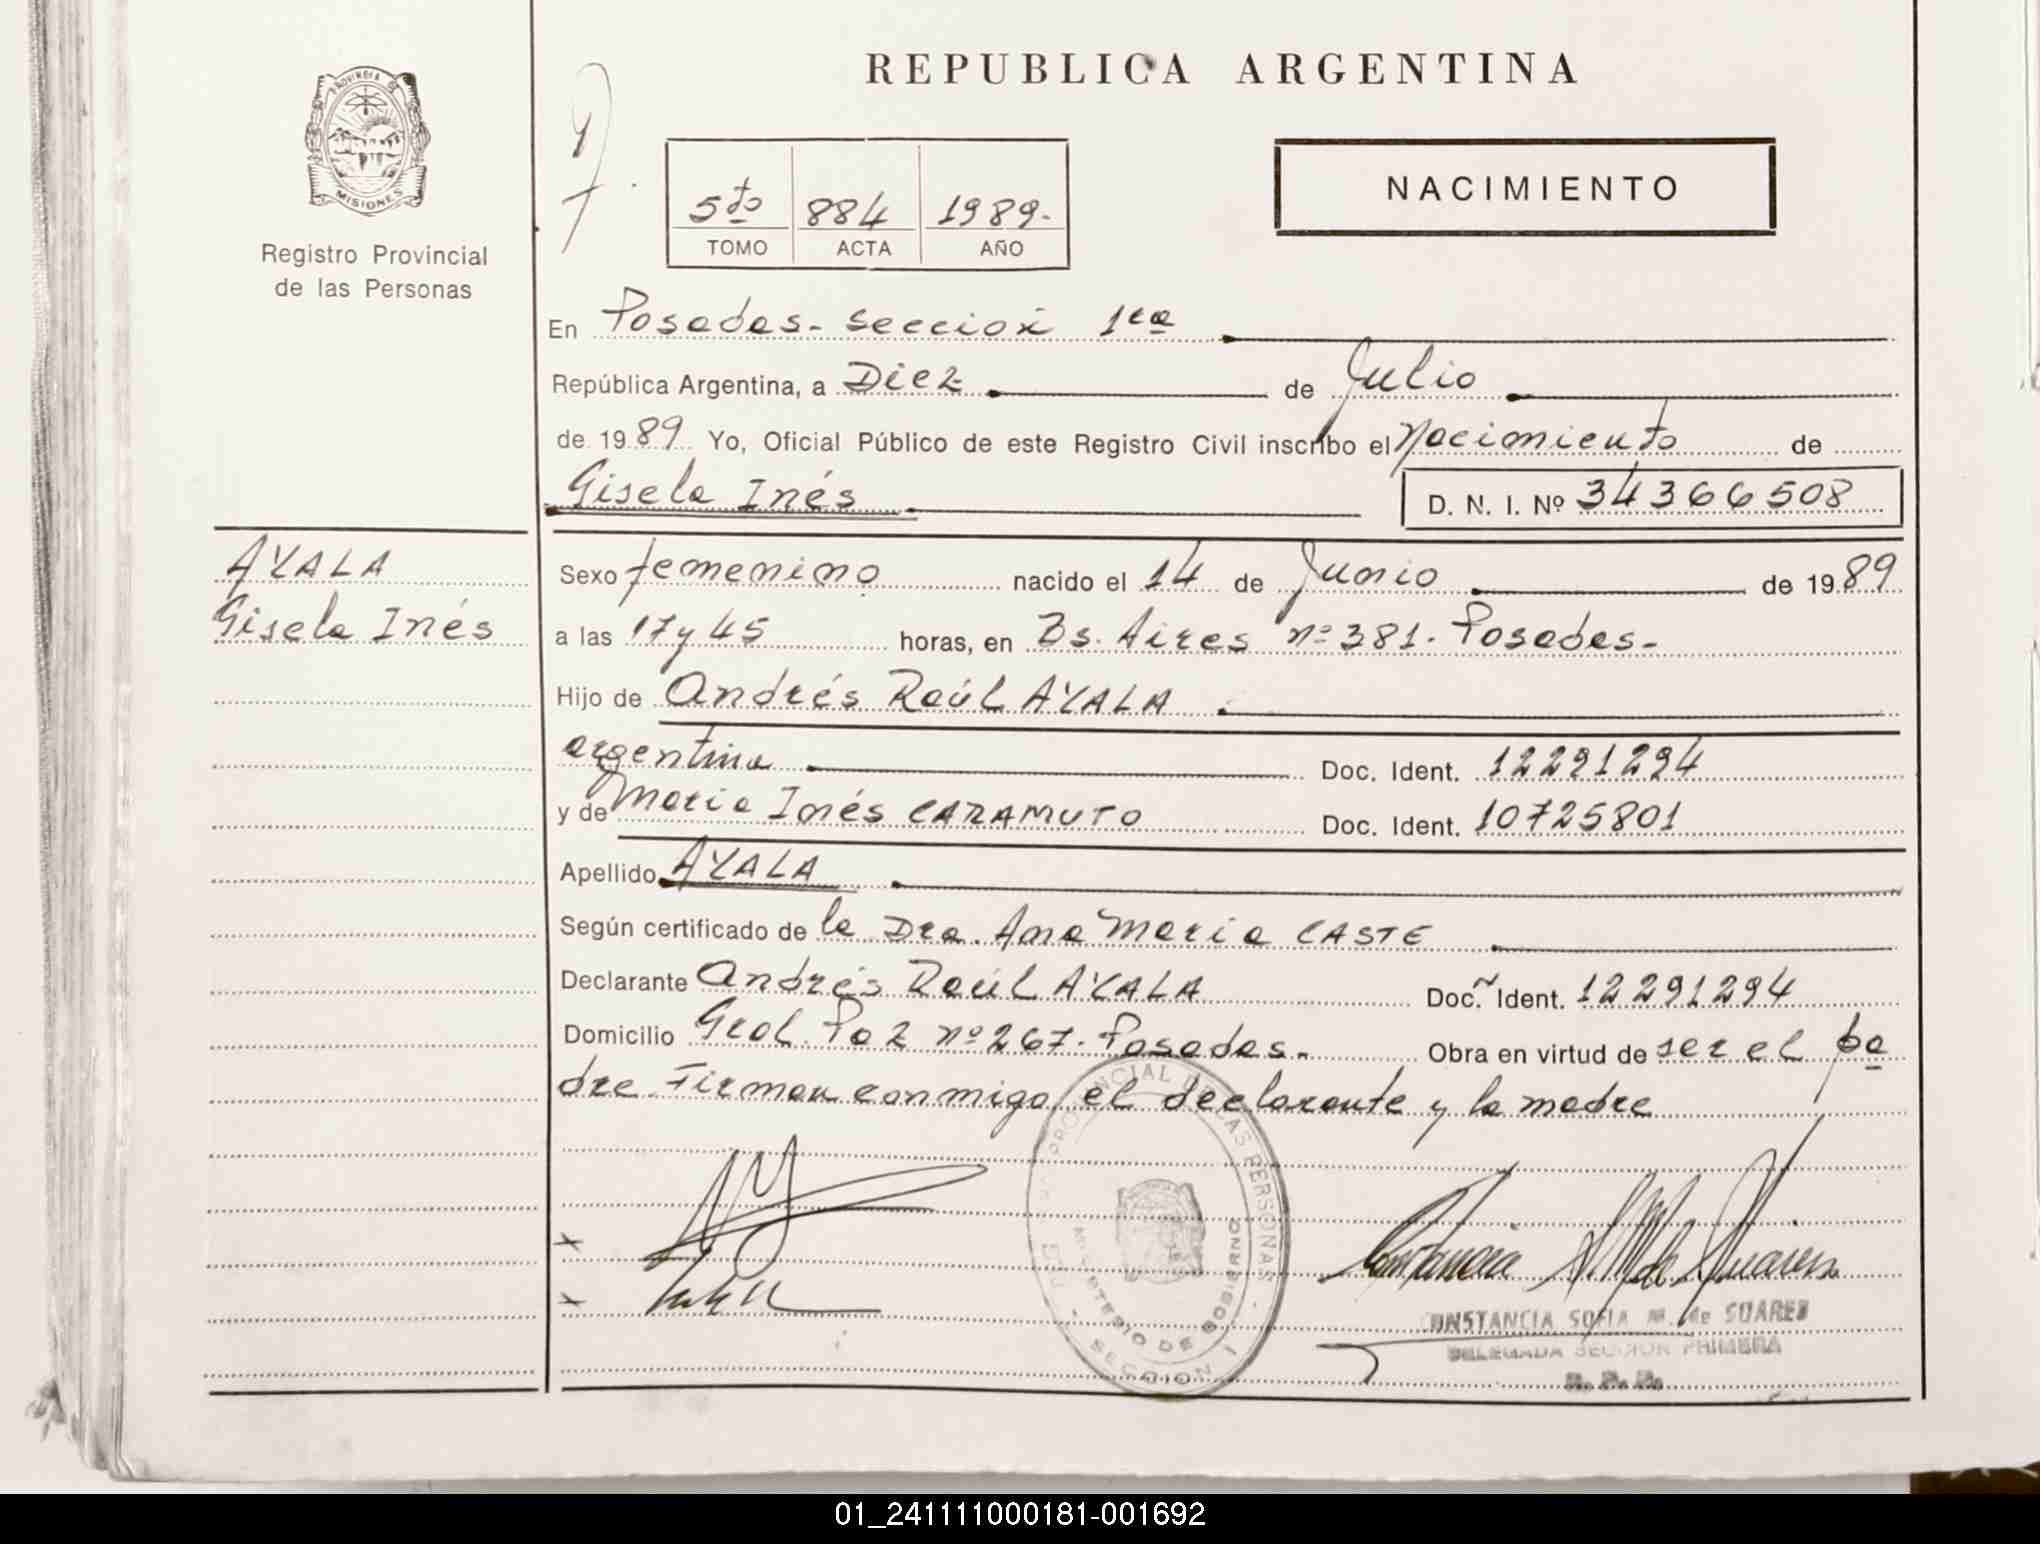 REPUBLICA ARGENTINA
PROVINCIA DE
MISIONES
Registro Provincial
de las Personas
5to 884 1989.
TOMO ACTA AÑO
NACIMIENTO
En Posadas - Sección 1ra
República Argentina, a Diez de Julio
de 1989 Yo, Oficial Público de este Registro Civil inscribo el Nacimiento de
Gisela Inés D. N. I. Nº 34366508
AYALA
Gisela Inés
Sexo femenino nacido el 14 de Junio de 1989
a las 17 y 45 horas, en Bs. Aires nº 381. Posadas-
Hijo de Andrés Raúl AYALA
argentina Doc. Ident. 12291294
y de Maria Inés CARAMUTO Doc. Ident. 10725801
Apellido AYALA
Según certificado de la Dra. Ana Maria CASTE
Declarante Andrés Raúl AYALA Doc. Ident. 12291294
Domicilio Gral. Paz nº 267. Posadas. Obra en virtud de ser el pa
dre. Firman conmigo el declarante y la madre
PROVINCIAL DE LAS PERSONAS
MINISTERIO DE GOBIERNO
SECCION I
CONSTANCIA SOFIA M. de SUAREZ
DELEGADA SECCION PRIMERA
R. P. P.
01_241111000181-001692